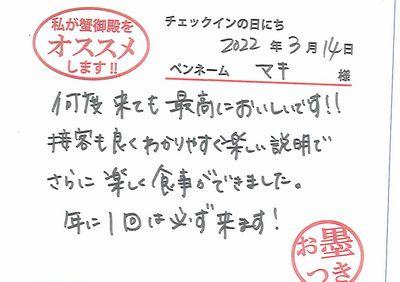 私が蟹御殿を
オススメ
します!!
チェックインの日にち
2022年3月14日
ペンネーム マキ 様
何度来ても最高においしいです!!
接客も良くわかりやすく楽しい説明で
さらに楽しく食事ができました。
年に1回は必ず来ます!
お墨
つき